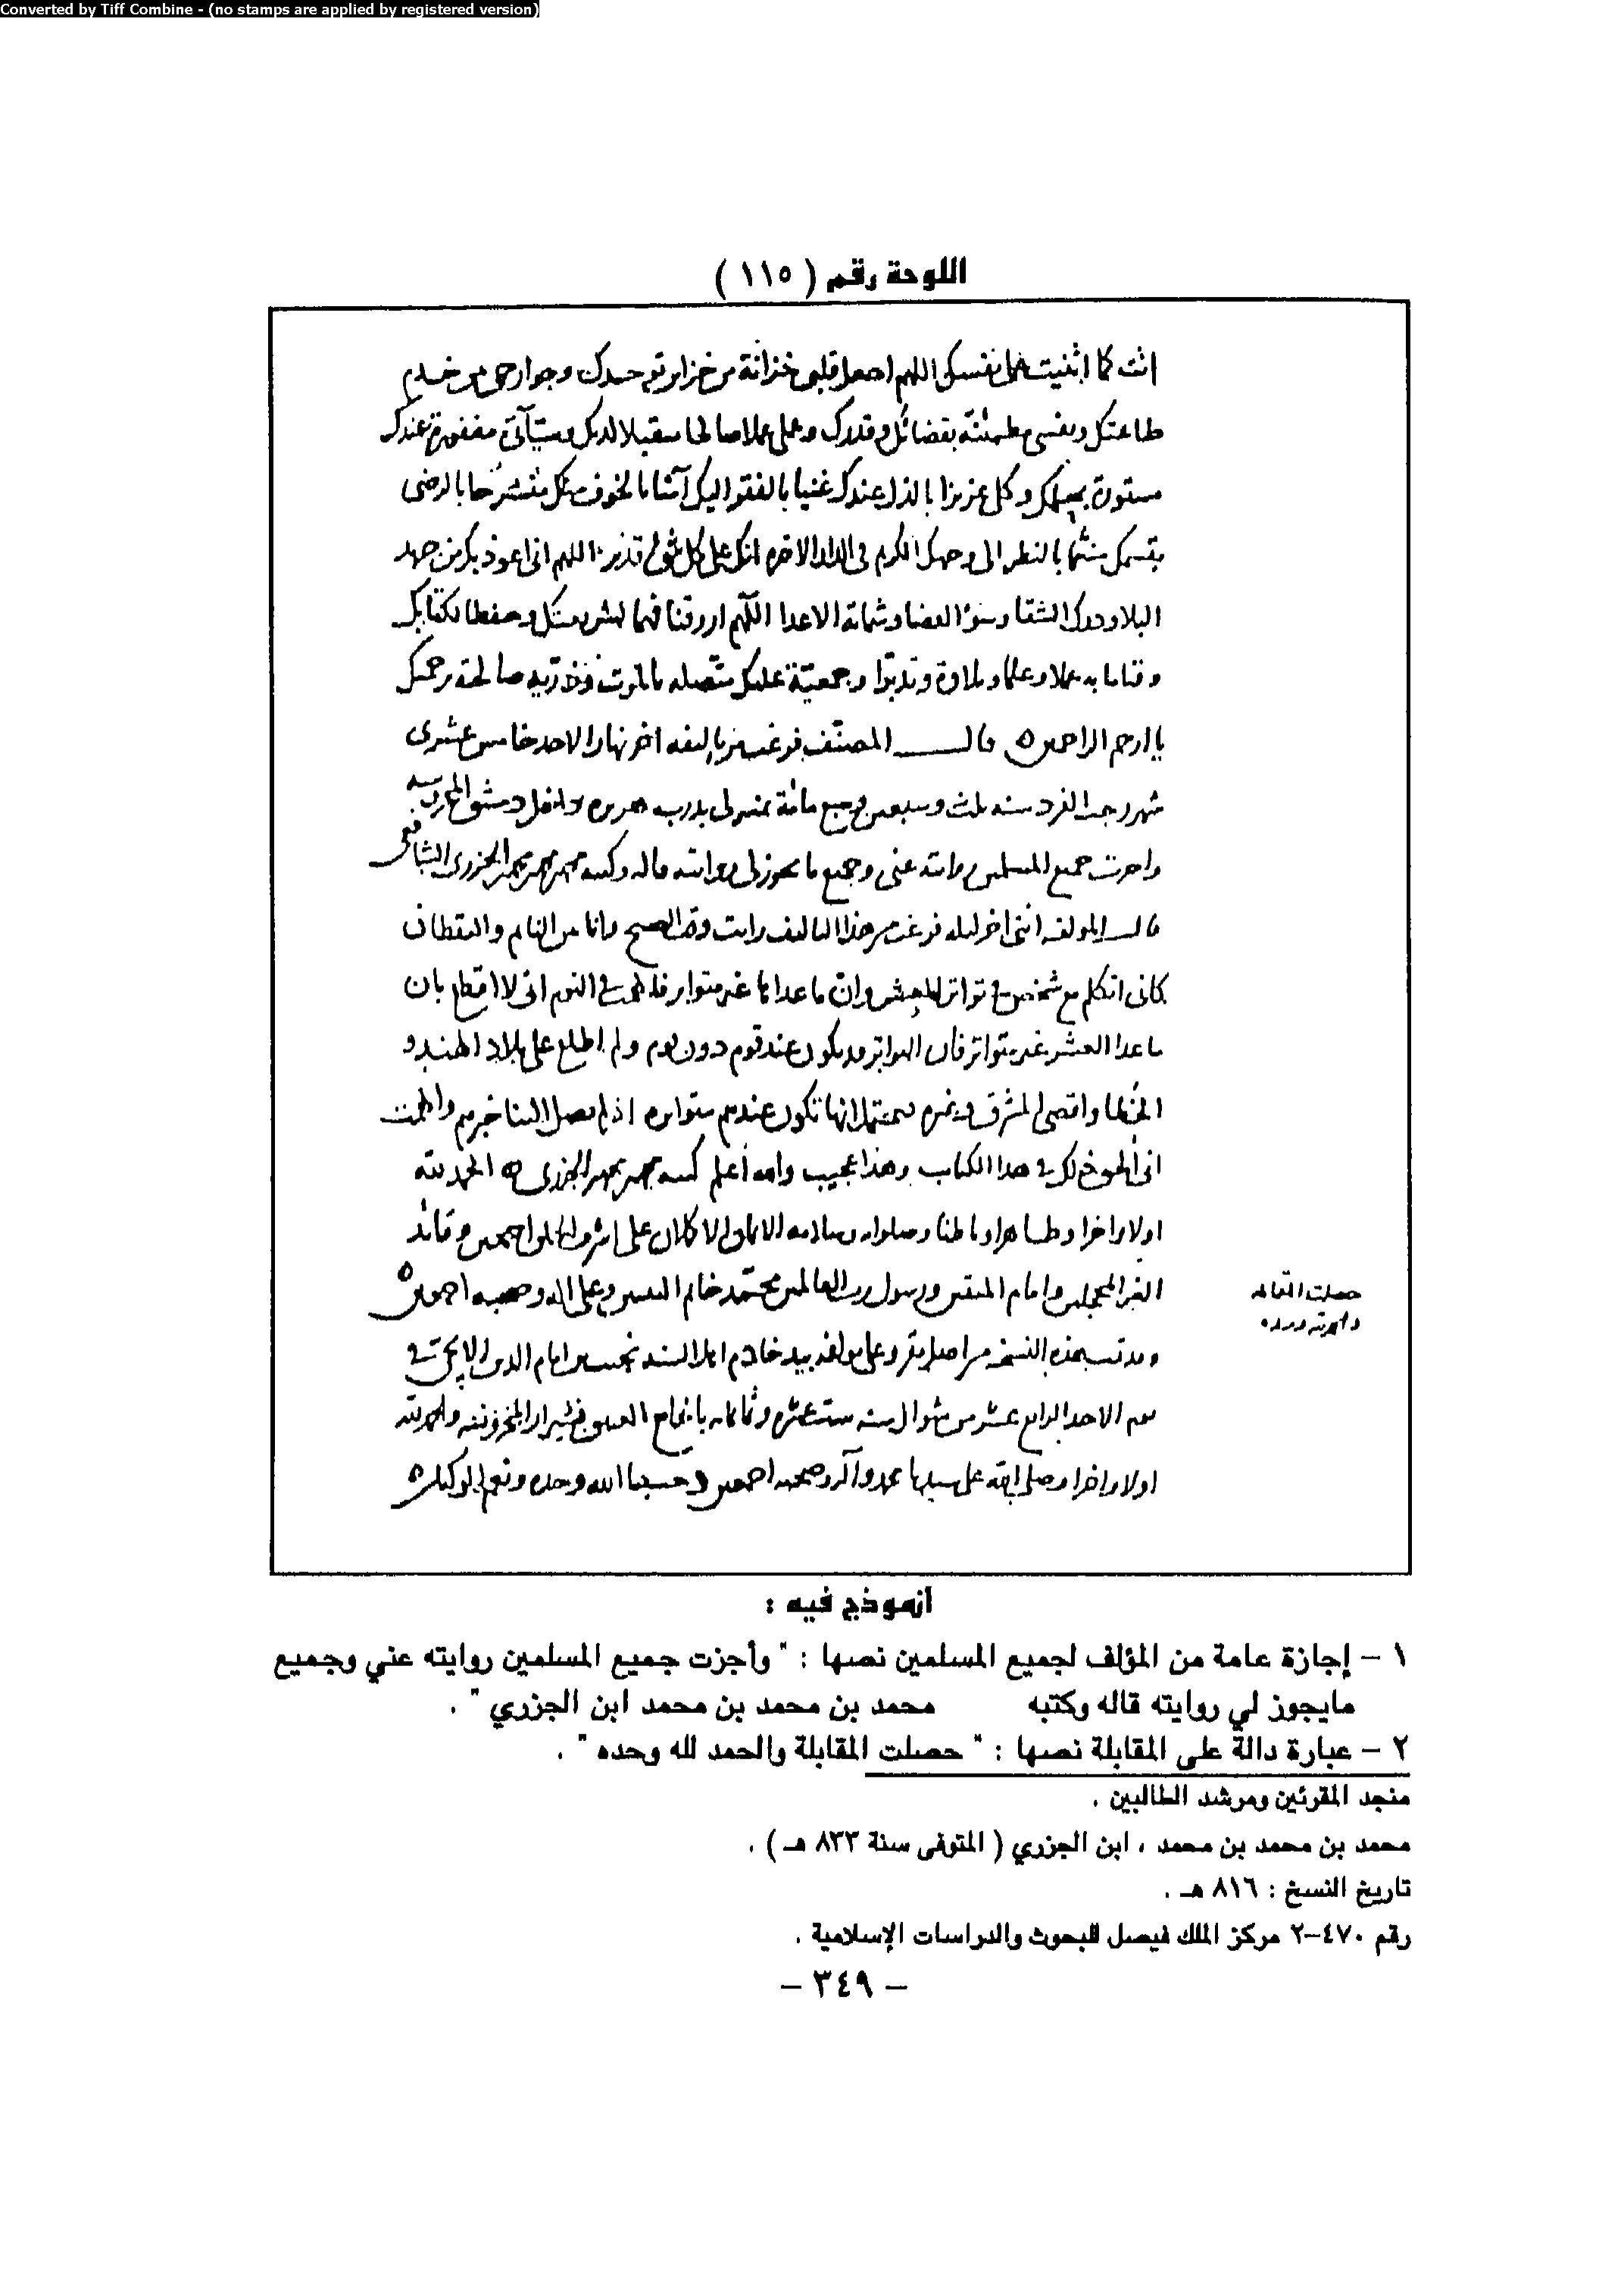 Converted by Tiff Combine - (no stamps are applied by registered version)
اللوحة رقم ( ١١٥ )
انت كما اثنيت على نفسك اللهم اجعل قلبى خزانة من خزاين توحيدك وجوارحى من خدم
طاعتك ونفسى مطمئنة بقضائك وقدرك وعملى عملا صالحا متقبلا لديك وسيآتى مغفورة عندك
مستورة بحلمك وكل عزيزا بالذل عندك غنيا بالفقر اليك آمنا بالخوف منك منشرحا بالرضى
بقسمك منعما بالنظر الى وجهك الكريم فى الدار الاخرة انك على كل شئ قدير اللهم انى اعوذ بك من جهد
البلا ودرك الشقا وسؤ القضا وشماتة الاعدا اللهم ارزقنا فهما لشريعتك وحفظا لكتابك
وقياما به عملا وعلما وتلاوة وتدبرا وجمعية عليك متصله بالموت وذرية صالحة برحمتك
يا ارحم الراحمين قال المصنف فرغت من تاليفه اخر نهار الاحد خامس عشرى
شهر رجب الفرد سنه ثلث وسبعين وسبع مائة بمنزلى بدرب هريره داخل دمشق المحروسه
واجزت جميع المسلمين روايته عنى وجميع ما يجوز لى روايته قاله وكتبه محمد بن محمد بن محمد الجزرى الشافعى
قال المولف اننى اخر ليله فرغت من هذا التاليف رايت وقت الصبح وانا بين النايم واليقظان
كانى اتكلم مع شخص فى تواتر العشر وان ما عداها غير متواتر فالهمت فى النوم انى لا اقطع بان
ما عدا العشر غير متواتر فان التواتر قد يكون عند قوم دون قوم ولم اطلع على بلاد الهند و
الخطا واقصى المشرق وغيرهم يحتمل انها تكون عندهم متواتره اذ لم يصل الينا خبرهم والهمت
انى الحق ذلك فى هذا الكتاب وهذا عجيب والله اعلم كتبه محمد بن محمد الجزرى الحمد لله
اولا واخرا وظاهرا وباطنا وصلواته وسلامه الاتمان الاكملان على اشرف الخلق اجمعين وقائد
الغر المحجلين وامام المتقين ورسول رب العالمين محمد خاتم النبيين وعلى اله وصحبه اجمعين
وقد نسخت هذه النسخة من اصل مقروء على مولفه بيد خادم اهل السنه بن امام الدين فى
يوم الاحد الرابع عشر من شوال سنه ست عشره وثمانمايه بالجامع العتيق بشيراز المحروسه والحمد لله
اولا واخرا وصلى الله على سيدنا محمد وآله وصحبه اجمعين وحسبنا الله وحده ونعم الوكيل
حصلت المقابله
والحمد لله وحده
أنموذج فيه :
١ – إجازة عامة من المؤلف لجميع المسلمين نصها : " وأجزت جميع المسلمين روايته عني وجميع
مايجوز لي روايته قاله وكتبه محمد بن محمد بن محمد ابن الجزري " .
٢ – عبارة دالة على المقابلة نصها : " حصلت المقابلة والحمد لله وحده " .
منجد المقرئين ومرشد الطالبين .
محمد بن محمد بن محمد ، ابن الجزري ( المتوفى سنة ٨٣٣ هـ ) .
تاريخ النسخ : ٨١٦ هـ .
رقم ٤٧٠-٢ مركز الملك فيصل للبحوث والدراسات الإسلامية .
– ٣٤٩ –